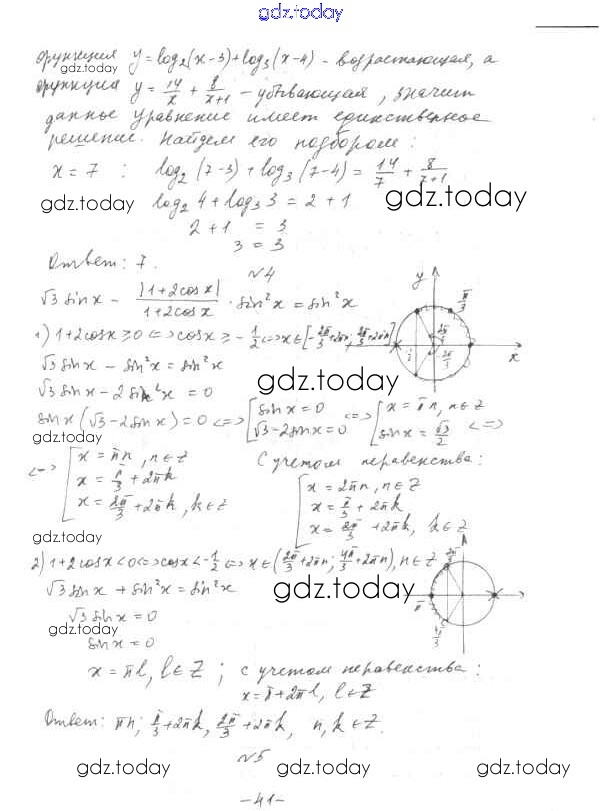 gdz.today
функция y = log₂(x-3)+log₃(x-4) - возрастающая, а
gdz.today
функция y = 14/x + 8/(x+1) - убывающая, значит
данное уравнение имеет единственное
решение. Найдем его подбором:
x = 7 : log₂(7-3)+log₃(7-4) = 14/7 + 8/(7+1)
gdz.today gdz.today
log₂4 + log₃3 = 2 + 1
2 + 1 = 3
3 = 3
Ответ: 7.
№4
√3 sin x - |1+2cos x|/(1+2cos x) · sin²x = sin²x
y π/3 2π/3 2π/3 x
1) 1+2cos x ≥ 0 <=> cos x ≥ -1/2 <=> x ∈ [-2π/3+2πn; 2π/3+2πn]
√3 sin x - sin²x = sin²x
gdz.today
√3 sin x - 2 sin²x = 0
sin x (√3 - 2 sin x) = 0 <=> [ sin x = 0 <=> [ x = πn, n∈Z
√3 - 2 sin x = 0 sin x = √3/2 <=>
gdz.today
<=> [ x = πn, n∈Z С учетом неравенства:
x = π/3 + 2πk [ x = 2πn, n∈Z
x = 2π/3 + 2πk, k∈Z x = π/3 + 2πk
x = 2π/3 + 2πk, k∈Z
gdz.today
2) 1+2cos x < 0 <=> cos x < -1/2 <=> x ∈ (2π/3+2πn; 4π/3+2πn), n∈Z
2π/3 π 4π/3
√3 sin x + sin²x = sin²x
gdz.today
√3 sin x = 0
gdz.today
sin x = 0
x = πl, l∈Z ; с учетом неравенства:
x = π + 2πl, l∈Z
Ответ: πn; π/3 + 2πk, 2π/3 + 2πk, n, k ∈ Z.
№5
gdz.today gdz.today gdz.today
- 41 -